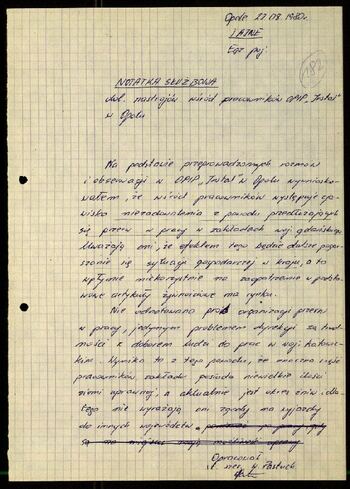 Opole 27.08.1980r.
TAJNE
Egz poj.
182
NOTATKA SŁUŻBOWA
dot. nastrojów wśród pracowników OPiP „Instal"
w Opolu
Na podstawie przeprowadzonych rozmów
i obserwacji w OPiP „Instal" w Opolu wywniosko-
wałem, że wśród pracowników występuje zja-
wisko niezadowolenia z powodu przedłużających
się przerw w pracy w zakładach woj. gdańskiego.
Uważają oni, że efektem tego będzie dalsze pogar-
szanie się sytuacji gospodarczej w kraju, a to
wpłynie niekorzystnie na zaopatrzenie w podsta-
wowe artykuły żywnościowe na rynku.
Nie odnotowano prób organizacji przerw
w pracy, jedynym problemem dyrekcji są trud-
ności z doborem ludzi do prac w woj. katowic-
kim. Wynika to z tego powodu, że znaczna część
pracowników zakładu posiada niewielkie ilości
ziemi uprawnej, a aktualnie jest okres żniw i dla-
tego nie wyrażają oni zgody na wyjazdy
do innych województw
są na miejscu mają możliwość
Opracował